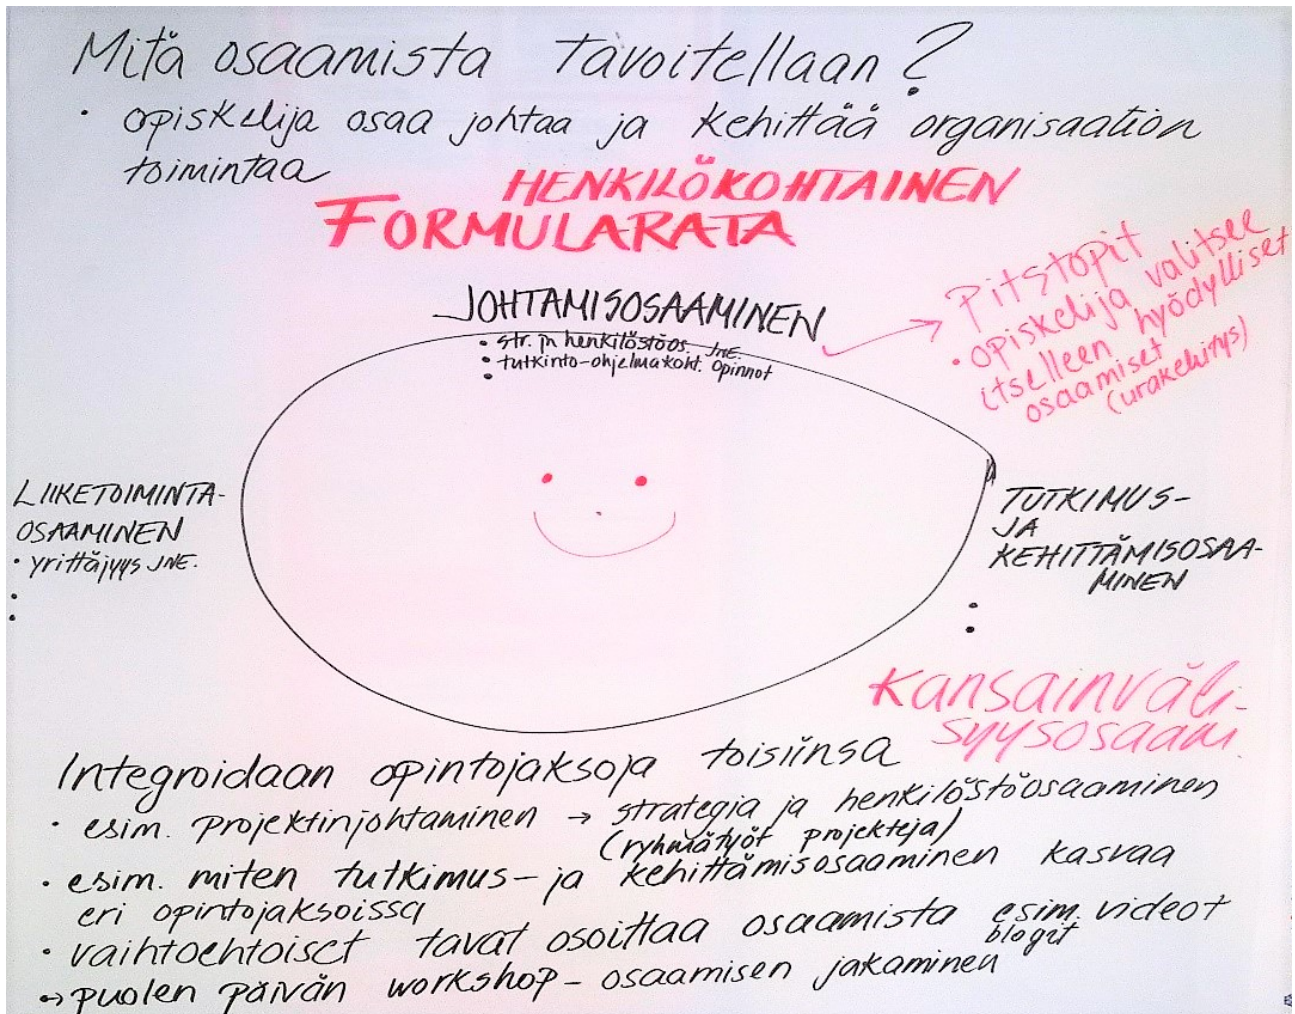 Mitä osaamista tavoitellaan?
• opiskelija osaa johtaa ja kehittää organisaation
toimintaa
HENKILÖKOHTAINEN
FORMULARATA
JOHTAMISOSAAMINEN
• str. ja henkilöstöos. JNE.
• tutkinto-ohjelmakoht. opinnot
•
Pitstopit
• opiskelija valitsee
itselleen hyödylliset
osaamiset
(urakehitys)
LIIKETOIMINTA-
OSAAMINEN
• yrittäjyys JNE.
•
•
TUTKIMUS-
JA
KEHITTÄMISOSAA-
MINEN
•
•
Kansainväli-
syysosaam.
Integroidaan opintojaksoja toisiinsa
• esim. projektinjohtaminen → strategia ja henkilöstöosaaminen
(ryhmätyöt projekteja)
• esim. miten tutkimus- ja kehittämisosaaminen kasvaa
eri opintojaksoissa
• vaihtoehtoiset tavat osoittaa osaamista esim. videot
blogit
↔ puolen päivän workshop - osaamisen jakaminen